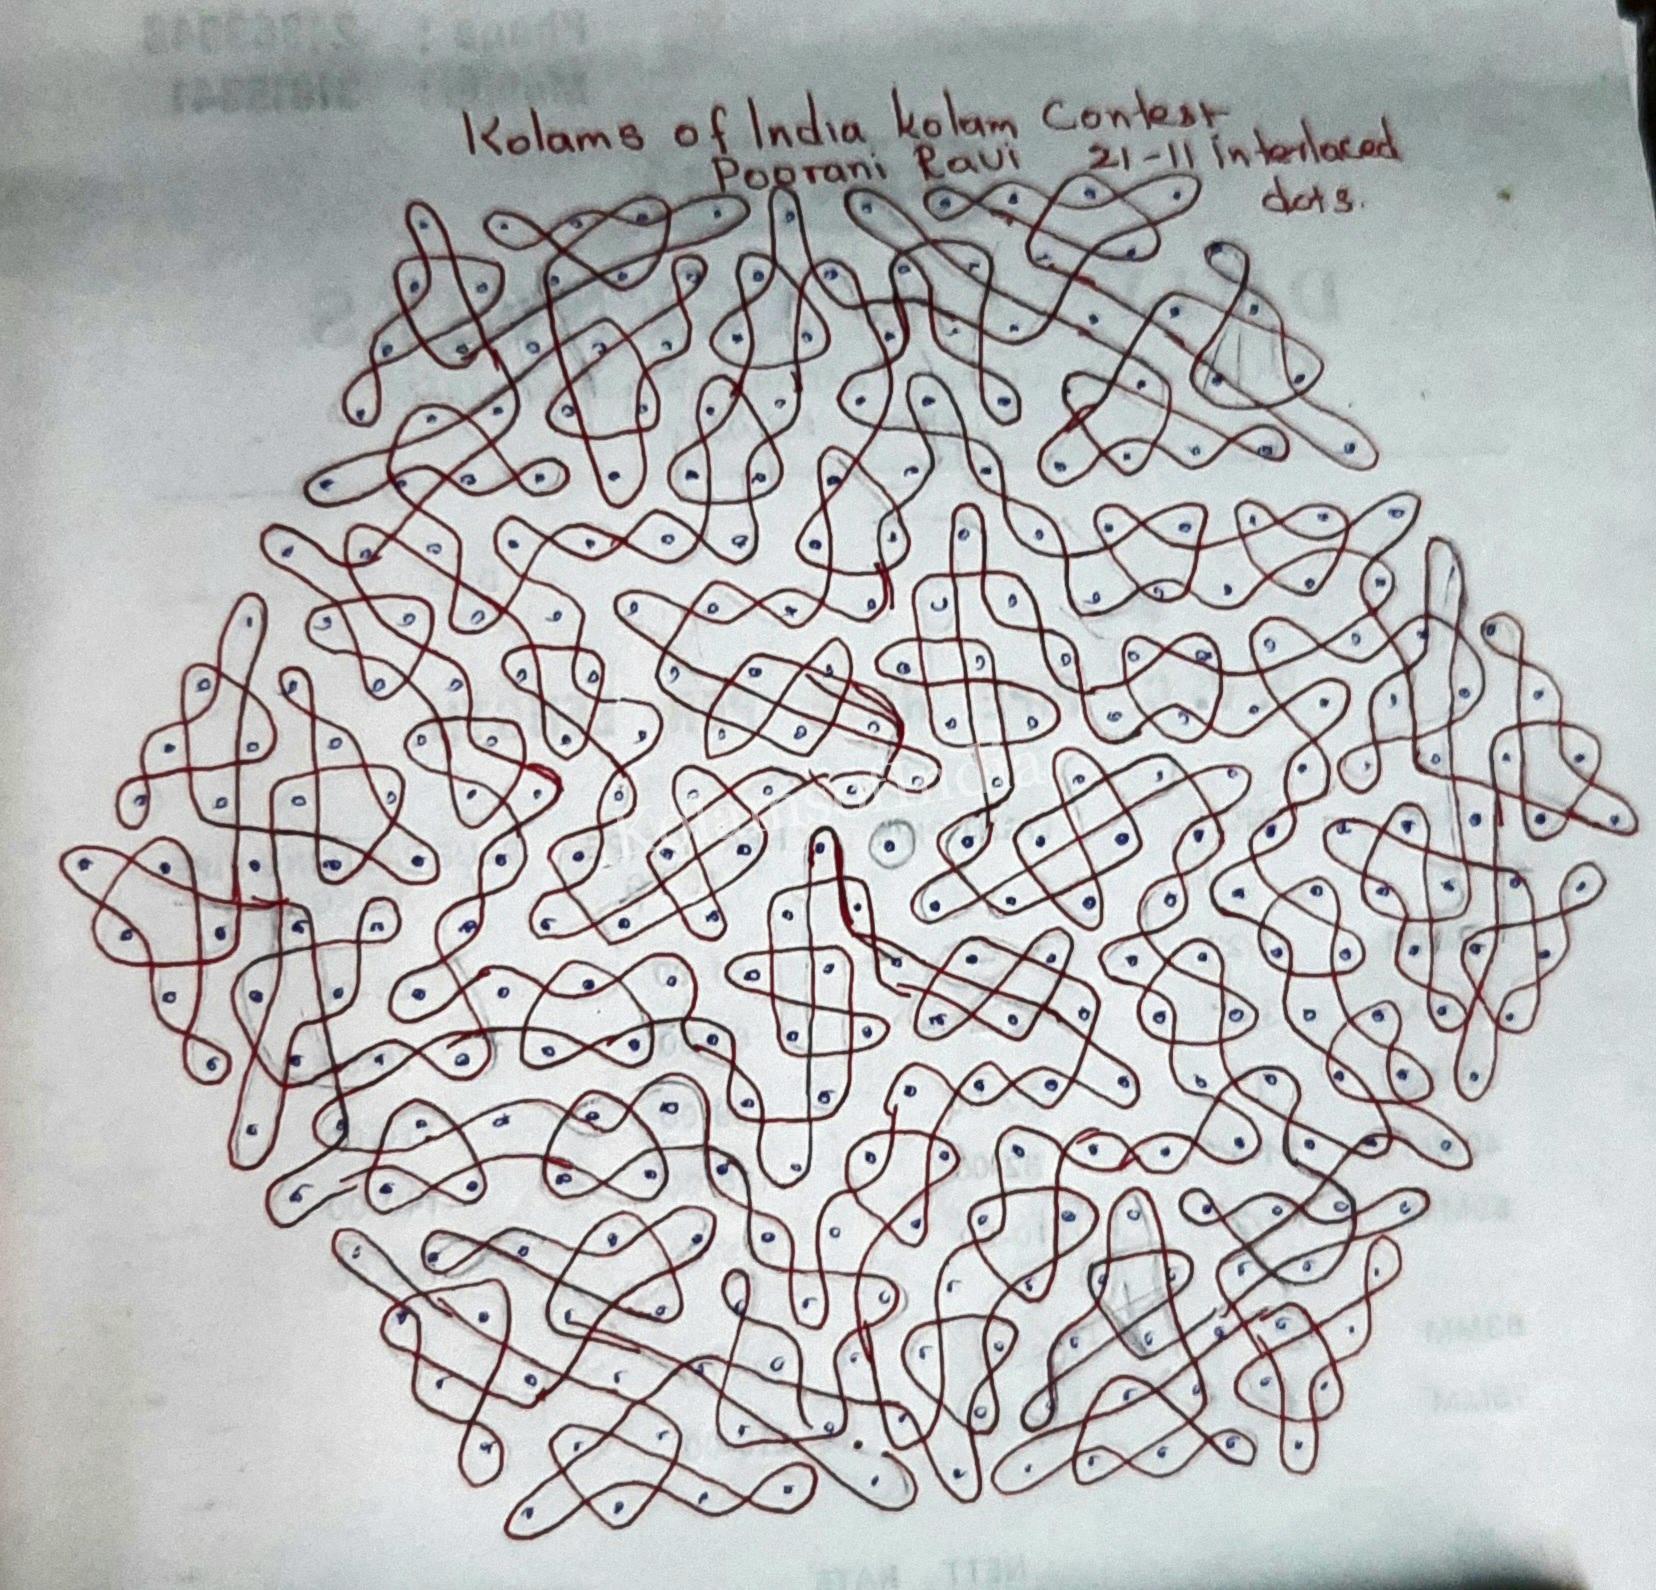 Kolams of India kolam Contest
Poorani Ravi 21-11 interlaced
dots.
kolamsofindia